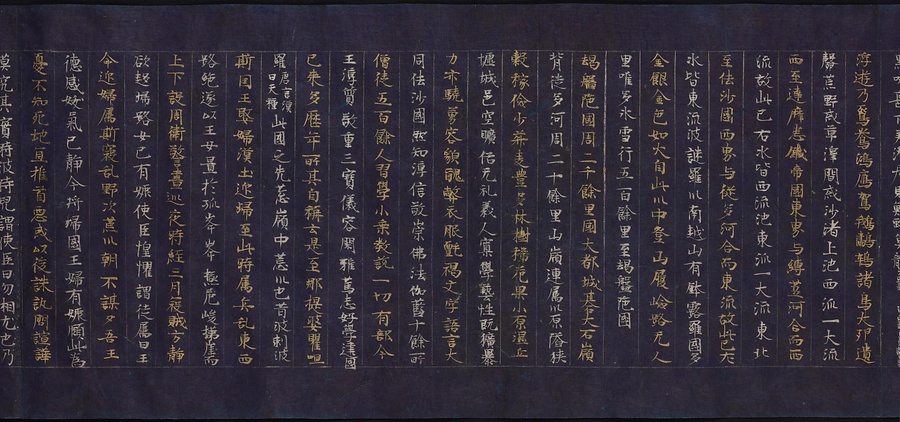 浮遊乃鴛鴦鴻鴈駕鵝鷫鸘諸鳥大卵遺
㲉荒野或草澤間或沙渚上池西派一大流
西至達摩悉鐵帝國東界與縛芻河合而西
流故此已右水皆西流池東派一大流東北
至佉沙國西界與徙多河合而東流故此已左
水皆東流波謎羅川南越山有鉢露羅國多
金銀金色如火自此川中登山履嶮路无人
里唯多氷雪行五百餘里至朅盤陁國
朅盤陁國周二千餘里國大都城基大石嶺
背徙多河周二十餘里山嶺連属川原隘狹
穀稼儉少菽麦豊多林樹稀花菓少原隰丘
墟城邑空曠俗无礼義人寡學藝性既獷暴
力亦驍勇容貌醜弊衣服氈褐文字語言大
同佉沙國然知淳信敬崇佛法伽藍十餘所
僧徒五百餘人習學小乗教說一切有部今
王淳質敬重三寶儀容閑雅篤志好學建國
已來多歷年所其自稱云是至那提婆瞿呾
羅唐言漢日天種此國之先葱嶺中荒川也昔波剌
斯國王娶婦漢土迎歸至此時属兵乱東西
路絶遂以王女置於孤峯峯極危峻梯崖而
上下設周衛警晝巡夜時經三月寇賊方静
欲趣歸路女已有娠使臣惶懼謂徒属曰王
命迎婦属斯寇乱野次荒川朝不謀夕吾王
德感妖氣已静今將歸國王婦有娠顧此為
憂不知死地宜推首惡或以後誅訊問諠譁
莫究其實時彼侍兒謂使臣曰勿相尤也乃